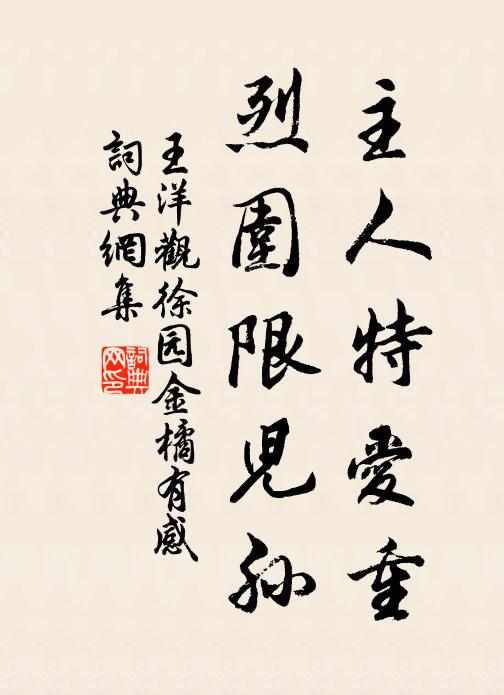 主人特愛重
烈圍限児孙
王洋觀徐园金橘有感
詞典網集
詞典
网印